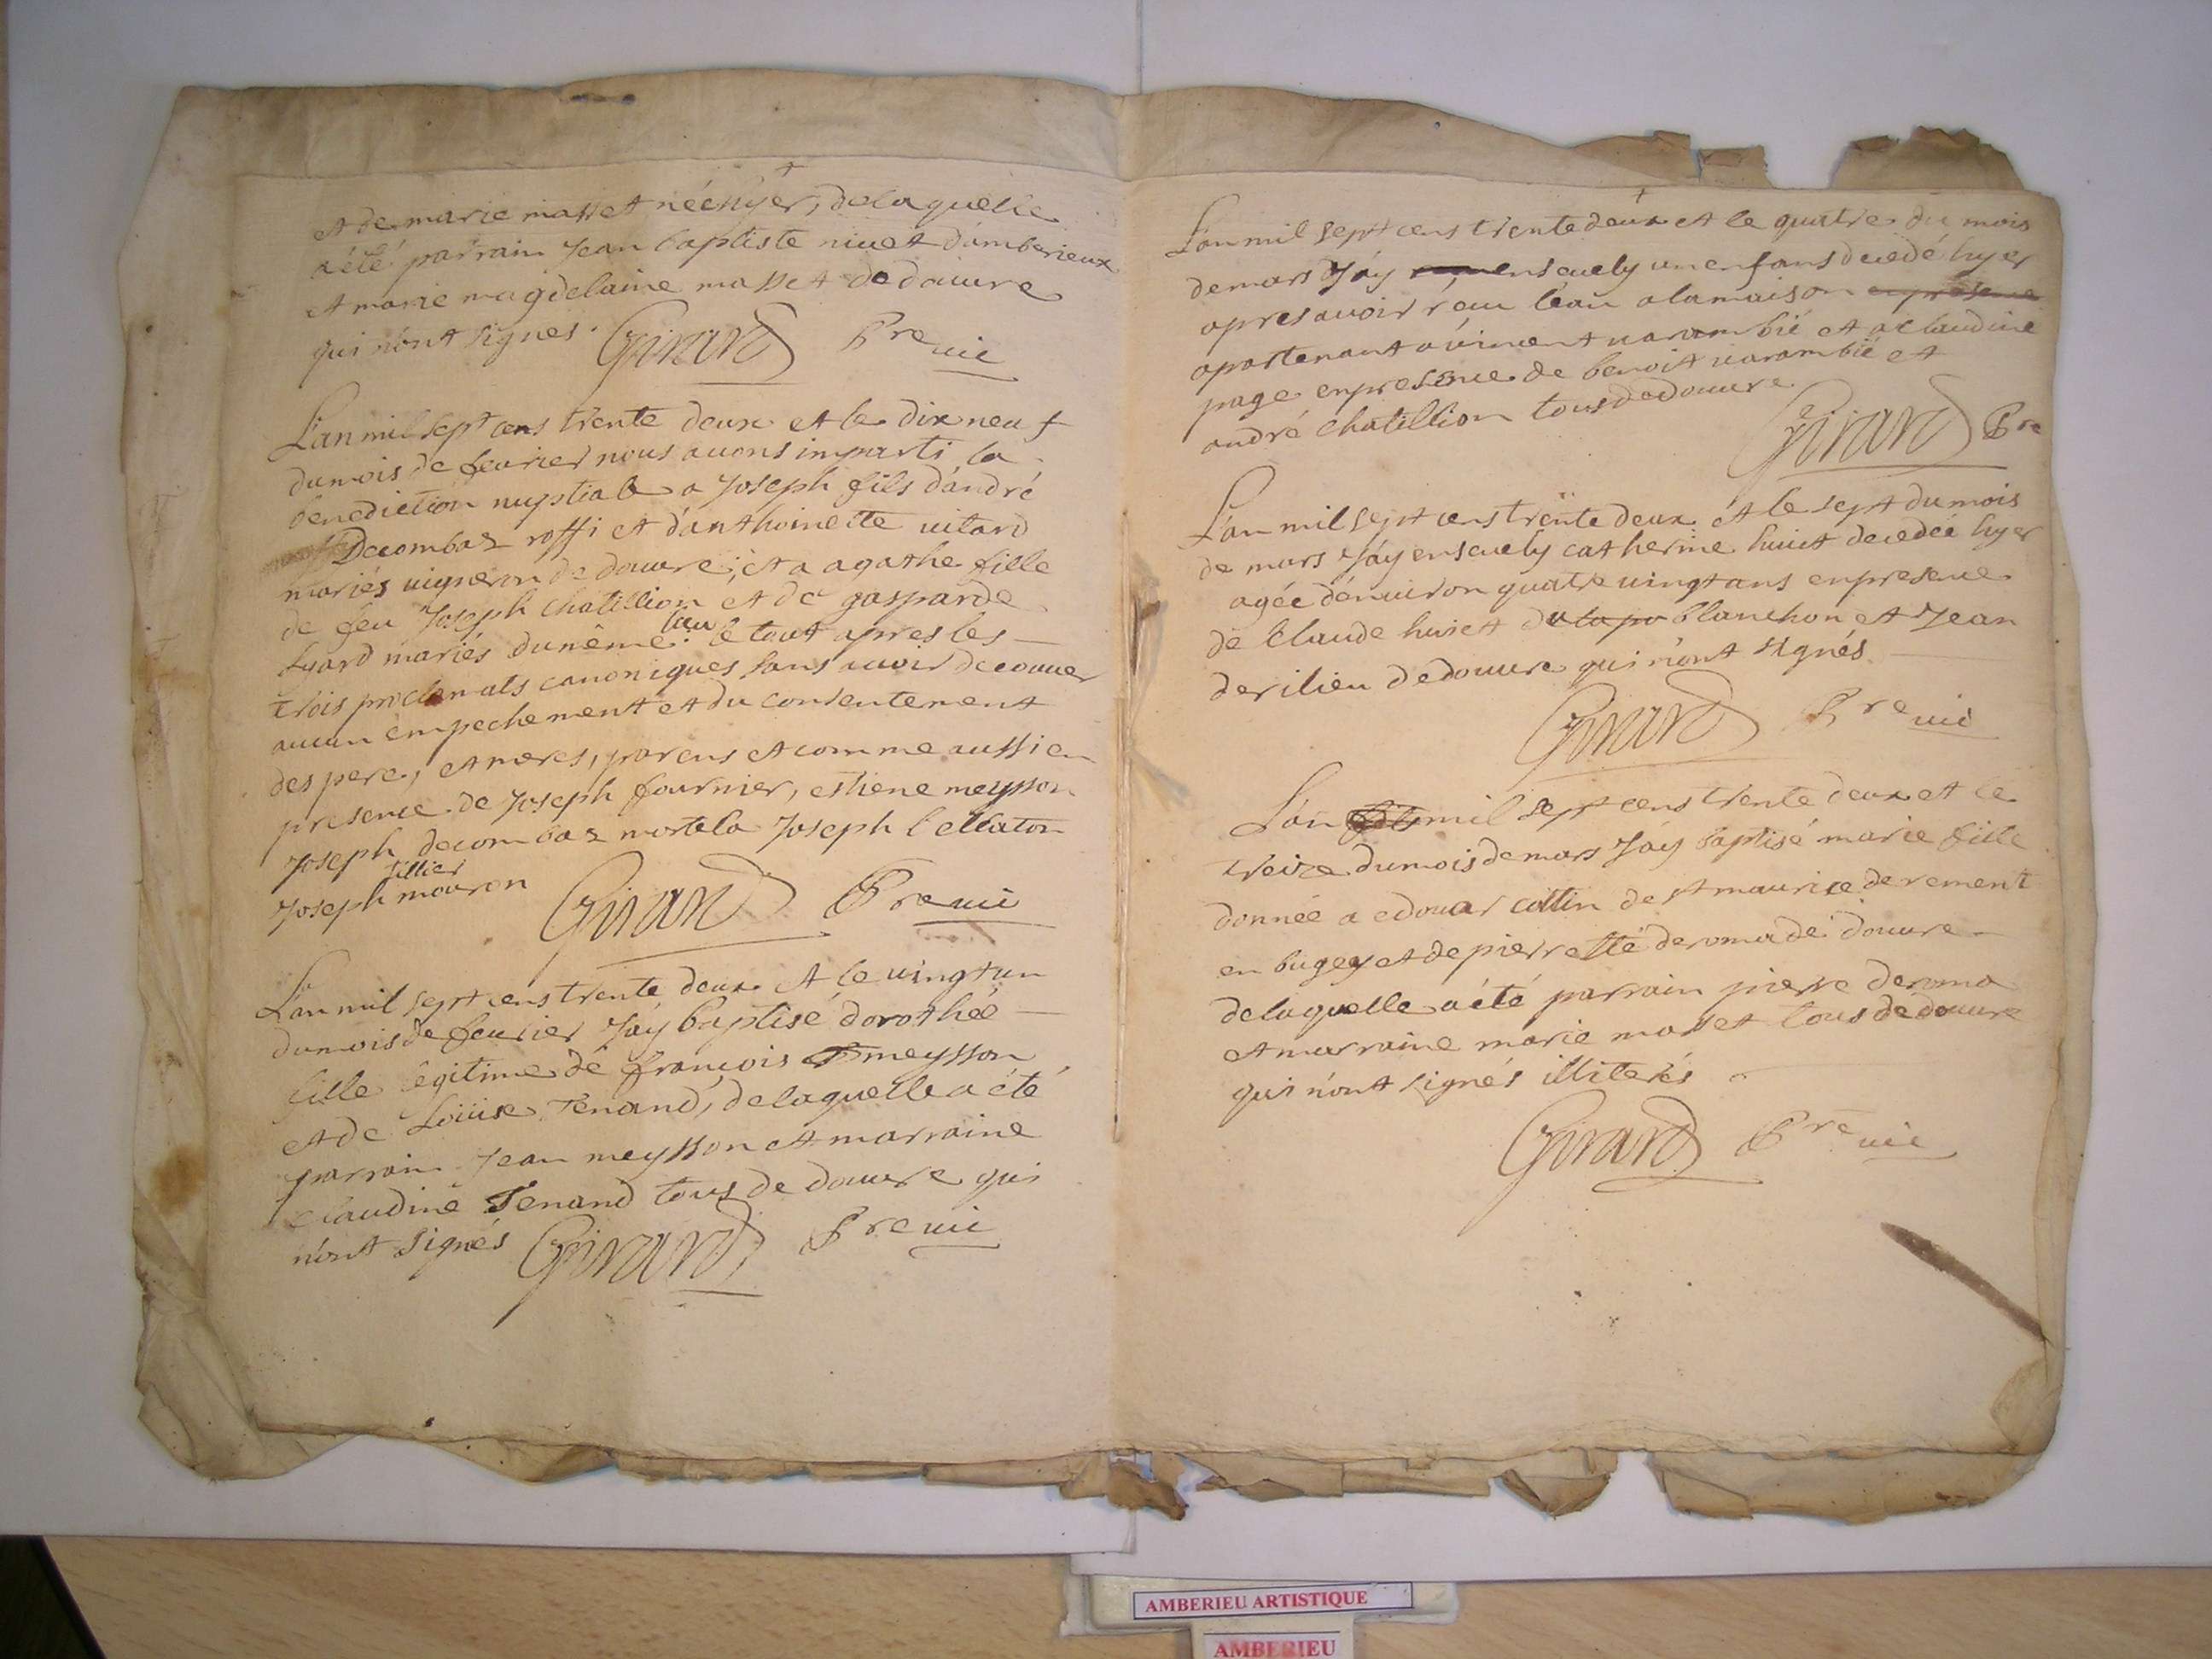 et de marie masset née hyer, delaquelle
a été parrain Jean baptiste niuet d'amberieux
et marie magdelaine masset de douure
qui n'ont signés. Girard Pre uic
L'an mil sept cens trente deux et le dix neuf
du mois de feurier nous auons imparti la
benediction nuptiale a Joseph fils d'andré
Decombaz roffi et d'anthoinette uitard
mariés uigneron de douure, et a agathe fille
de feu Joseph chatillion et de gasparde
luard mariés du même lieu le tout apres les
trois proclamats canoniques sans auoir decouuer
aucun empechement et du consentement
des pere, et meres, parens et comme aussi en
presence de Joseph fournier, estiene meysson
Joseph decombaz mortela Joseph
tillier
Joseph mouron Girard Pre uic
L'an mil sept cens trente deux et le uingt un
du mois de feurier J'ay baptisé dorothée
fille legitime de françois meysson
et de Loüise Tenand, delaquelle a été
parrain Jean meysson et marraine
claudine Tenand tous de douure qui
n'ont signés Girard Pre uic
L'an mil sept cens trente deux et le quatre du mois
de mars J'ay enseuely un enfans decedé hyer
apres auoir reçu l'eau a la maison
apartenant a uincent uarambié et a claudine
page en presence de benoit uarambié et
andré chatillion tous de douure
Girard Pre
L'an mil sept cens trente deux et le sept du mois
de mars J'ay enseuely catherine huiet decedée hyer
agée d'enuiron quatre uingt ans en presence
de claude huiet blanchon et Jean
derilieu de douure qui n'ont signés
Girard Pre uic
L'an mil sept cens trente deux et le
treize du mois de mars J'ay baptisé marie fille
donnée a edouar collin de st maurice de rement
en bugey et de pierrette deroma de douure
delaquelle a été parrain pierre deroma
et marraine marie masset tous de douure
qui n'ont signés illiterés
Girard Pre uic
AMBERIEU ARTISTIQUE
AMBERIEU